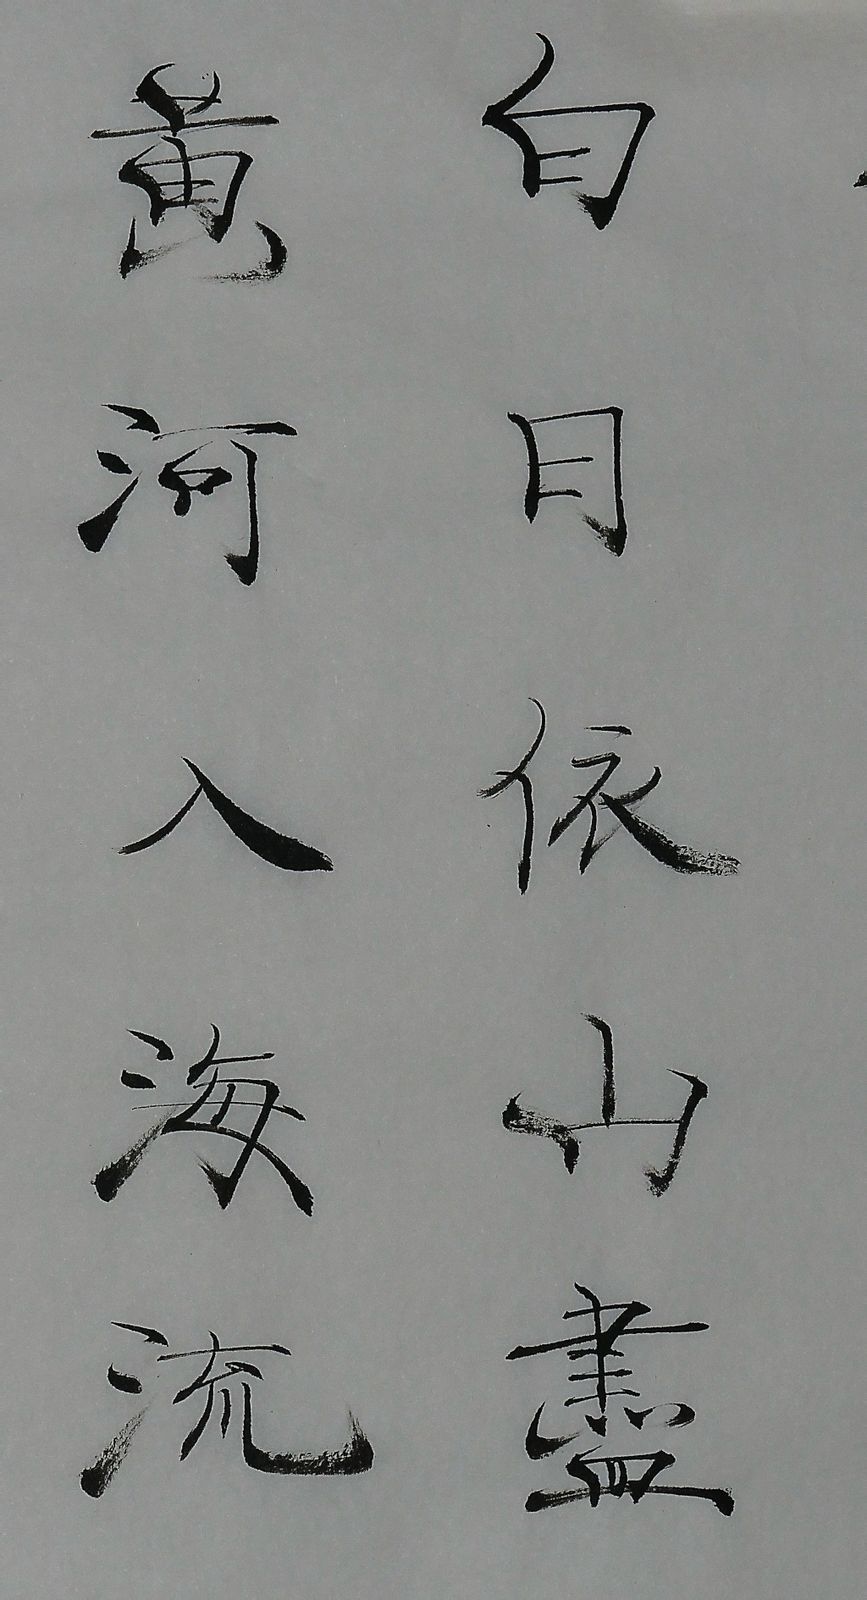 白日依山盡
黃河入海流